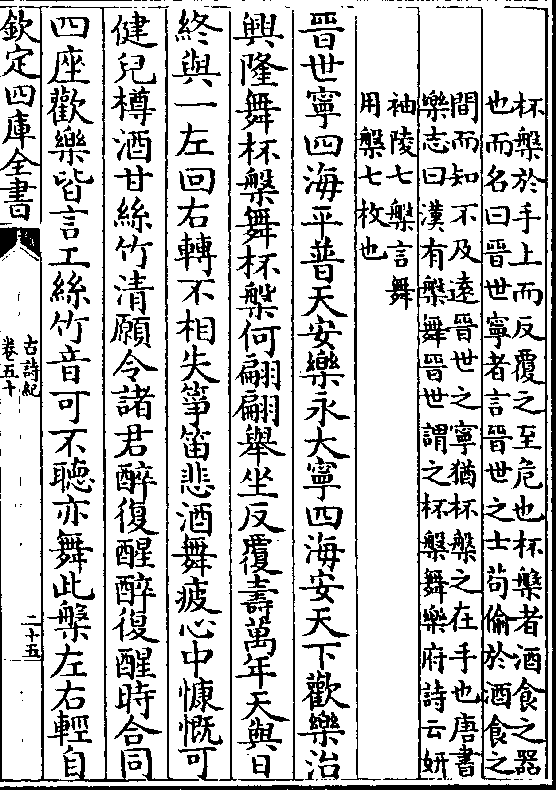 杯槃於手上而反覆之至危也杯槃者酒食之器
也而名曰晉世寧者言晉世之士苟偷於酒食之
間而知不及遠晉世之寧猶杯槃之在手也唐書
樂志曰漢有槃舞晉世謂之杯槃舞樂府詩云妍
袖陵七槃言舞
用槃七枚也
晉世寧四海平普天安樂永大寧四海安天下歡樂治
興隆舞杯槃舞杯槃何翩翩舉坐反覆壽萬年天與日
終與一左回右轉不相失箏笛悲酒舞疲心中慷慨可
健兒樽酒甘絲竹清願令諸君醉復醒醉復醒時合同
四座歡樂皆言工絲竹音可不聽亦舞此槃左右輕自
欽定四庫全書
古詩紀
卷五十
二十五